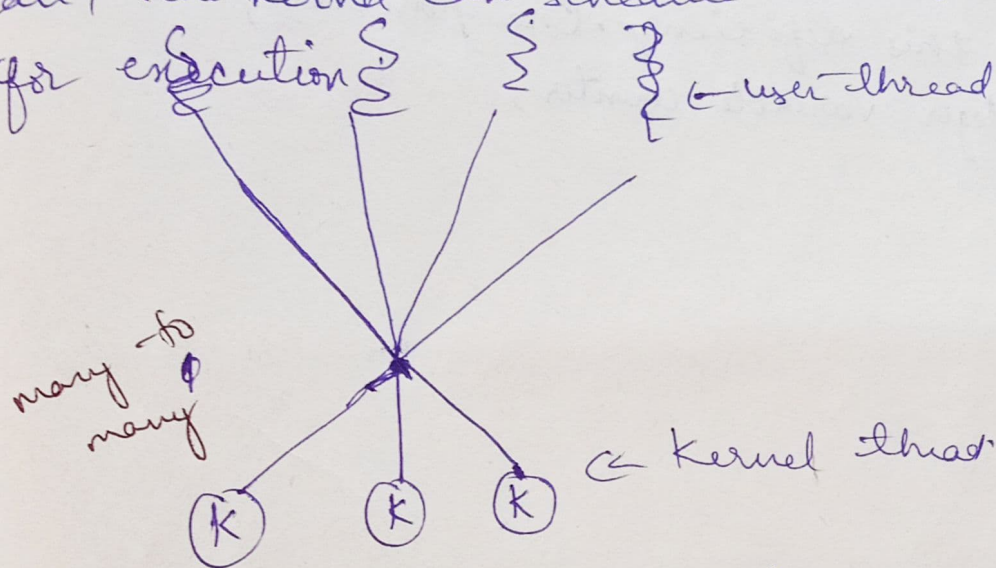 for execution
← user thread
many to
many
← Kernel thread
K K K